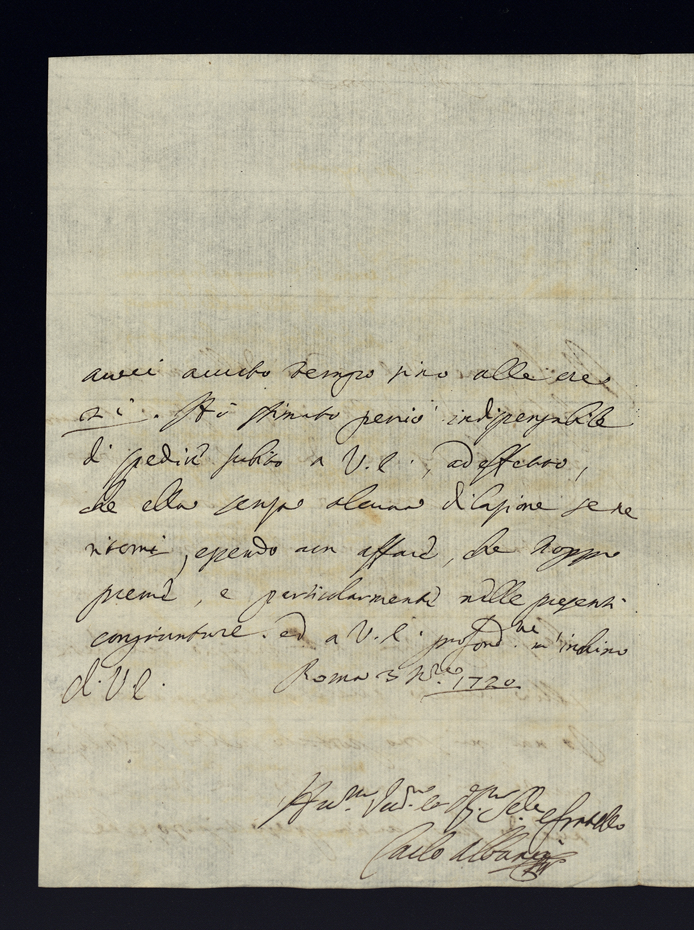 avrei avuto tempo sino alle tre
Hò stimato perciò indispensabile
di spedire subito a V. E., ad effetto,
che ella senza alcuna dilazione se ne
ritorni, essendo un affare, che troppo
preme, e particolarmente nelle presenti
congiunture. ed a V. E. profond.me m'inchino
di V. E. Roma 3 N.re 1720
Hu.mo e fratello
Carlo Albani